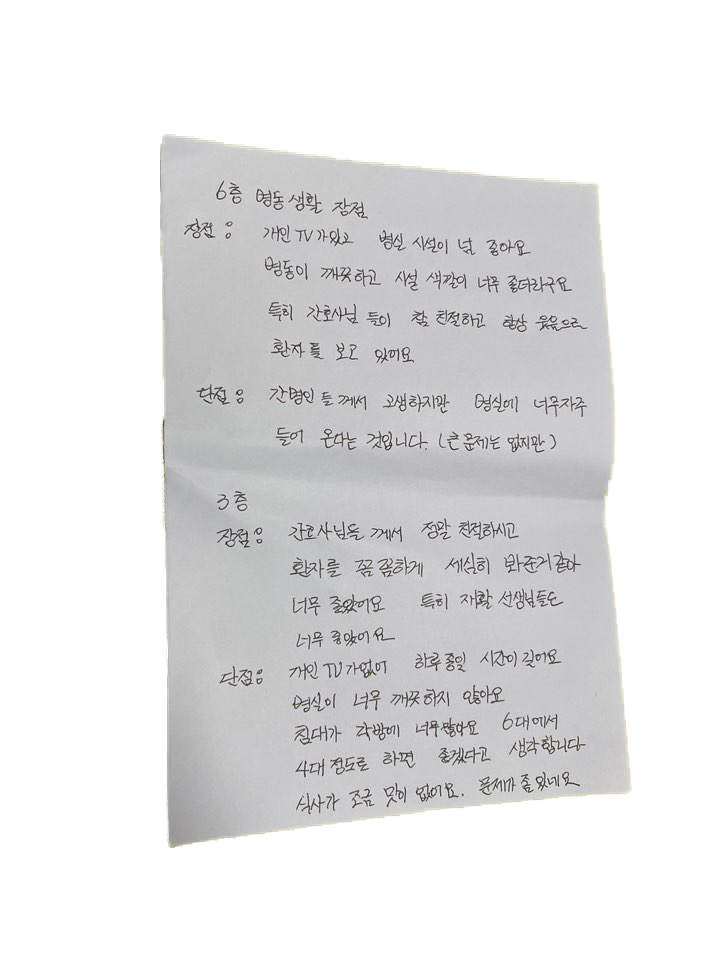 6층 병동생활 장점
장점 : 개인 TV가있고 병실 시설이 넘 좋아요
병동이 깨끗하고 시설 색깔이 너무 좋더라구요
특히 간호사님 들이 참 친절하고 항상 웃음으로
환자를 보고 있어요
단점 : 간병인 들께서 고생하지만 병실에 너무자주
들어 온다는 것입니다. (큰 문제는 없지만)
3층
장점 : 간호사님들 께서 정말 친절하시고
환자를 꼼꼼하게 세심히 봐준거같아
너무 좋았어요 특히 재활 선생님들도
너무 좋았어요
단점 : 개인 TV가없어 하루종일 시간이 길어요
병실이 너무 깨끗하지 않아요
침대가 각방에 너무많아요 6대에서
4대 정도로 하면 좋겠다고 생각합니다
식사가 조금 맛이 없어요. 문제가 좀 있네요